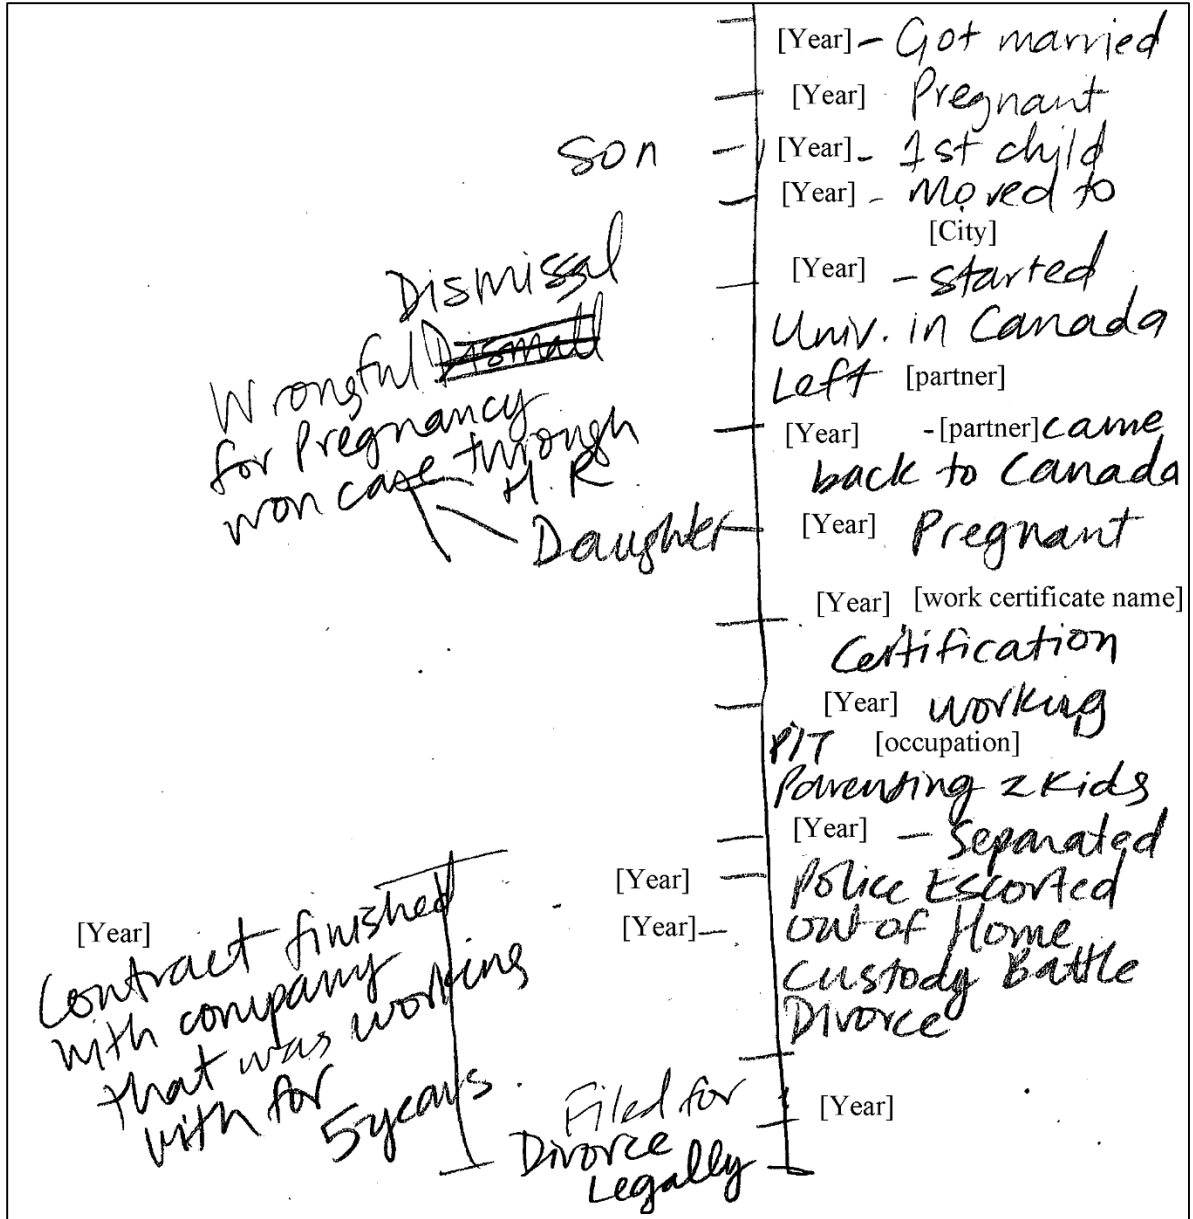 [Year] - Got married
[Year] Pregnant
son
[Year] - 1st child
[Year] - Moved to
[City]
[Year] - started
Univ. in Canada
Left [partner]
Dismissal
Wrongful Dismall
for Pregnancy
won case through
H.R.
[Year] - [partner] came
back to Canada
Daughter
[Year] Pregnant
[Year] [work certificate name]
Certification
[Year] working
P/T [occupation]
Parenting 2 Kids
[Year] - Separated
[Year]
Police Escorted
[Year]
out of Home
Custody Battle
Divorce
[Year]
Contract finished
with company
that was working
with for
5 years.
Filed for
Divorce
Legally
[Year]